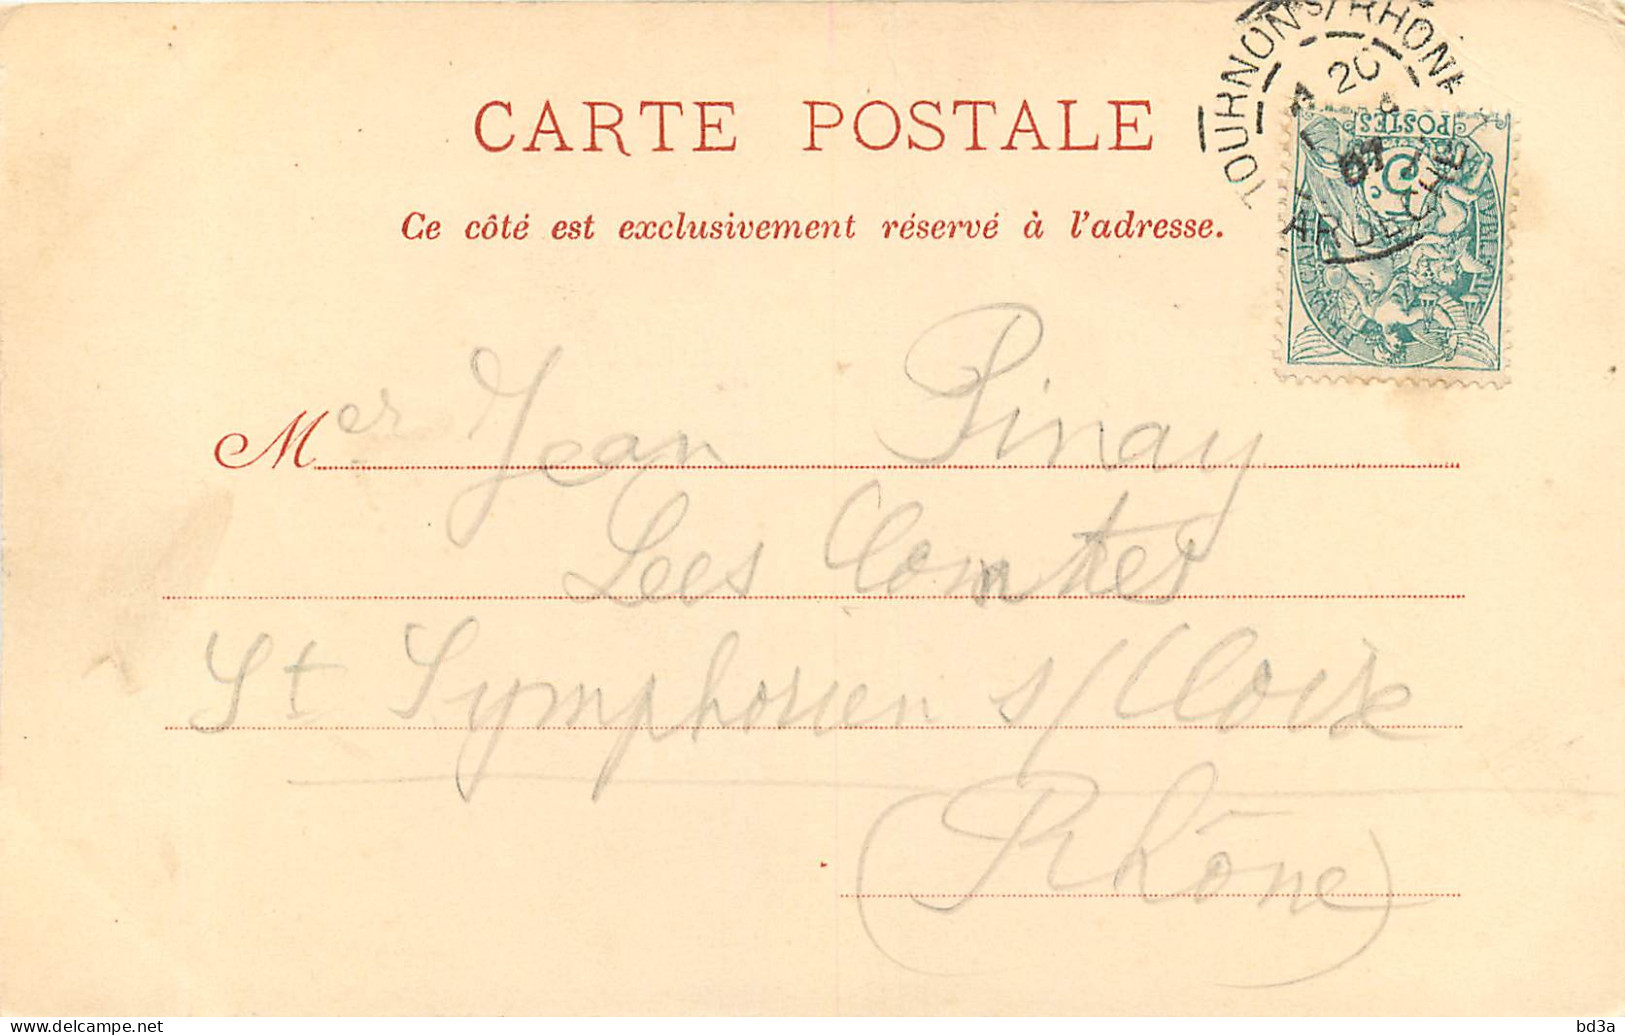 CARTE POSTALE
Ce côté est exclusivement réservé à l'adresse.
TOURNON S/ RHONE
20
01
ARDECHE
POSTES
5
Mer Jean Pinay
Lees Comtes
St Symphorien s/ Cloix
(Rhône)
delcampe.net
bd3a